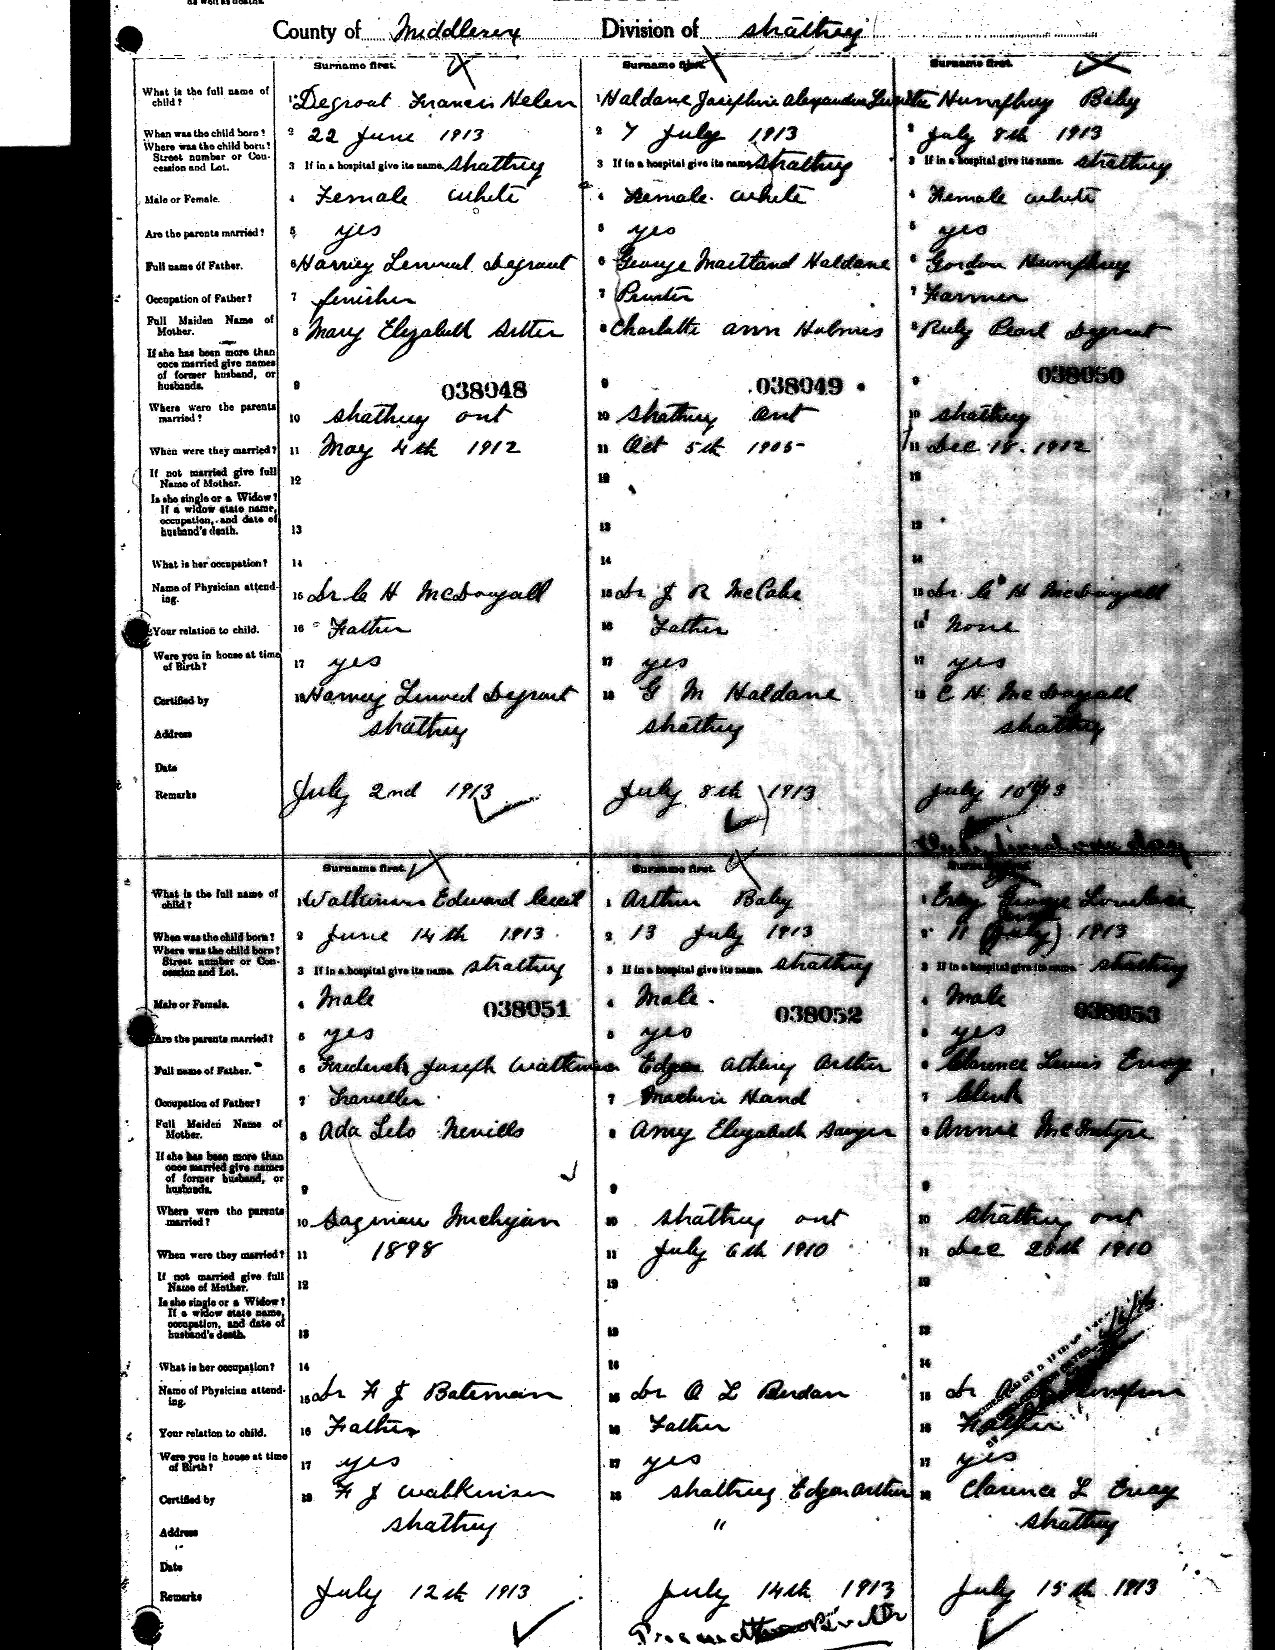 County of Middlesex Division of Strathroy
Surname first. Surname first. Surname first.
What is the full name of child? 1 Degroat Francis Helen 1 Haldane Josephine Alexandra 1 Humphrey Baby
When was the child born? 2 22 June 1913 2 7 July 1913 2 July 8th 1913
Where was the child born? Street number or Concession and Lot. 3 If in a hospital give its name. Strathroy 3 If in a hospital give its name Strathroy 3 If in a hospital give its name. Strathroy
Male or Female. 4 Female white 4 Female. white 4 Female white
Are the parents married? 5 yes 5 yes 5 yes
Full name of Father. 6 Harvey Lennard Degroat 6 George Maitland Haldane 6 Gordon Humphrey
Occupation of Father? 7 finisher 7 Printer 7 Farmer
Full Maiden Name of Mother. 8 Mary Elizabeth 8 Charlotte Ann Holmes 8 Ruby Pearl Degroat
If she has been more than once married give names of former husband, or husbands. 9 038048 9 038049 9 038050
Where were the parents married? 10 Strathroy Ont 10 Strathroy Ont 10 Strathroy
When were they married? 11 May 4th 1912 11 Oct 5th 1905 11 Dec 18. 1912
If not married give full Name of Mother. 12 12 12
Is she single or a Widow? If a widow state name, occupation, and date of husband's death. 13 13 13
What is her occupation? 14 14 14
Name of Physician attending. 15 Dr C H McDougall 15 Dr J R McCabe 15 Dr C H McDougall
Your relation to child. 16 Father 16 Father 16 None
Were you in house at time of Birth? 17 yes 17 yes 17 yes
Certified by 18 Harvey Lennard Degroat 18 G M Haldane 18 C H McDougall
Address Strathroy Strathroy Strathroy
Date
Remarks July 2nd 1913 July 8th 1913 July 10th 13
lived one day
Surname first. Surname first. Surname first.
What is the full name of child? 1 Watkinson Edward Cecil 1 Arthur Baby 1 Ervay George
When was the child born? 2 June 14th 1913 2 13 July 1913 2 11 (July) 1913
Where was the child born? Street number or Concession and Lot. 3 If in a hospital give its name. Strathroy 3 If in a hospital give its name. Strathroy 3 If in a hospital give its name. Strathroy
Male or Female. 4 Male 038051 4 Male. 038052 4 Male 038053
Are the parents married? 5 yes 5 yes 5 yes
Full name of Father. 6 Frederick Joseph Watkinson 6 Edgar Arthur 6 Clarence Lewis Ervay
Occupation of Father? 7 Traveller 7 Machine Hand 7 Clerk
Full Maiden Name of Mother. 8 Ada Nevills 8 Amy Elizabeth Sawyer 8 Annie McIntyre
If she has been more than once married give names of former husband, or husbands. 9 9 9
Where were the parents married? 10 Saginaw Michigan 10 Strathroy Ont 10 Strathroy Ont
When were they married? 11 1898 11 July 6th 1910 11 Dec 26th 1910
If not married give full Name of Mother. 12 12 12
Is she single or a Widow? If a widow state name, occupation, and date of husband's death. 13 13 13
What is her occupation? 14 14 14
Name of Physician attending. 15 Dr F J Bateman 15 Dr A L Berdan 15 Dr
Your relation to child. 16 Father 16 Father 16 Father
Were you in house at time of Birth? 17 yes 17 yes 17 yes
Certified by 18 F J Watkinson 18 Strathroy Edgar Arthur 18 Clarence L Ervay
Address Strathroy " Strathroy
Date
Remarks July 12th 1913 July 14th 1913 July 15th 1913
Premature Birth